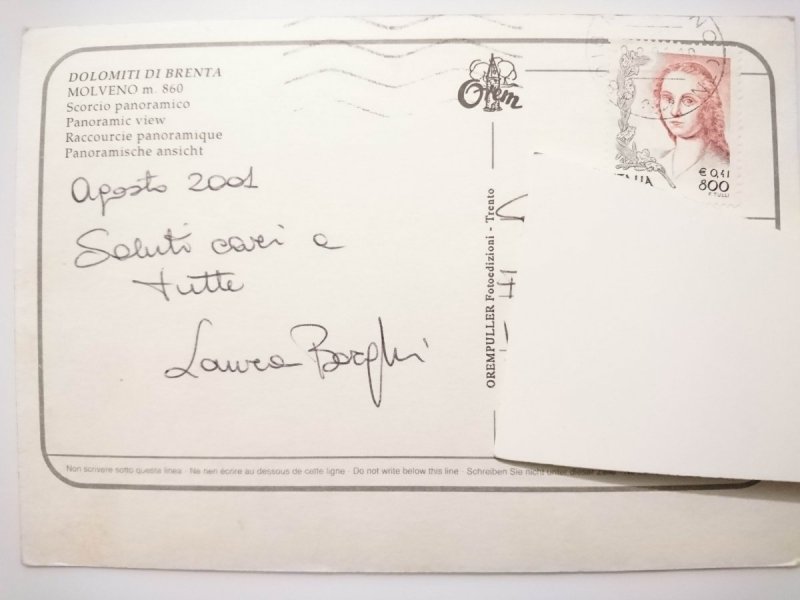 DOLOMITI DI BRENTA
MOLVENO m. 860
Scorcio panoramico
Panoramic view
Raccourcie panoramique
Panoramische ansicht
Agosto 2001
Saluti cari a
tutte
Laura Borghi
Orem
OREMPULLER Fotoedizioni - Trento
€ 0,41
800
F. TULLI
Non scrivere sotto questa linea · Ne rien écrire au dessous de cette ligne · Do not write below this line · Schreiben Sie nicht unter dieser Zeile